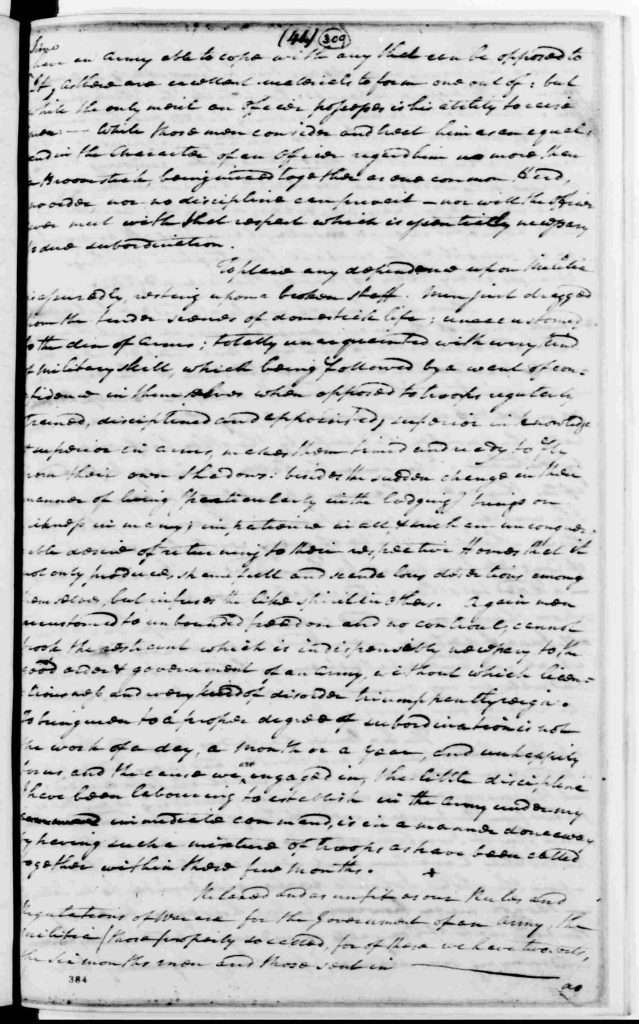 (44) 309
time
have an Army able to cope with any that can be opposed to
it, as there are excellent materials to form one out of: but
while the only merit an Officer possesses is his ability to raise
men — while those men consider and treat him as an equal;
and in the Character of an Officer regard him no more than
a Broomstick, being mixed together as one common Herd,
no order, nor no discipline can prevail — nor will the Officer
ever meet with that respect which is essentially necessary
to due subordination.
To place any dependence upon Militia
is assuredly, resting upon a broken staff. Men just dragged
from the tender scenes of domestick life; unaccustomed
to the din of Arms; totally unacquainted with every kind
of Military skill, which being followed by a want of con-
fidence in themselves when opposed to troops regularly
trained, disciplined and appointed, superior in knowledge
& superior in arms, makes them timid and ready to fly
from their own Shadows: besides the sudden change in their
manner of living (particularly in the lodging) brings on
sickness in many; impatience in all & such an unconquer-
able desire of returning to their respective Homes that it
not only produces shamefull and scandalous desertions among
themselves, but infuses the like spirit in others. Again men
accustomed to unbounded freedom and no controul, cannot
brook the restraint which is indispensibly necessary to the
good order & government of an Army, without which licen-
tiousness and every kind of disorder triumphently reign.
To bring men to a proper degree of subordination is not
the work of a day, a month or a year, and unhappily
for us, and the cause we are engaged in, the little discipline
I have been labouring to establish in the Army under my
immediate command, is in a manner done away
by having such a mixture of troops as have been called
together within these few months. +
Relaxed and as unfit as our Rules and
Regulations of War are for the Government of an Army, the
Militia (those properly so called, for of these we have two sorts,
the six months men and those sent in
as
384